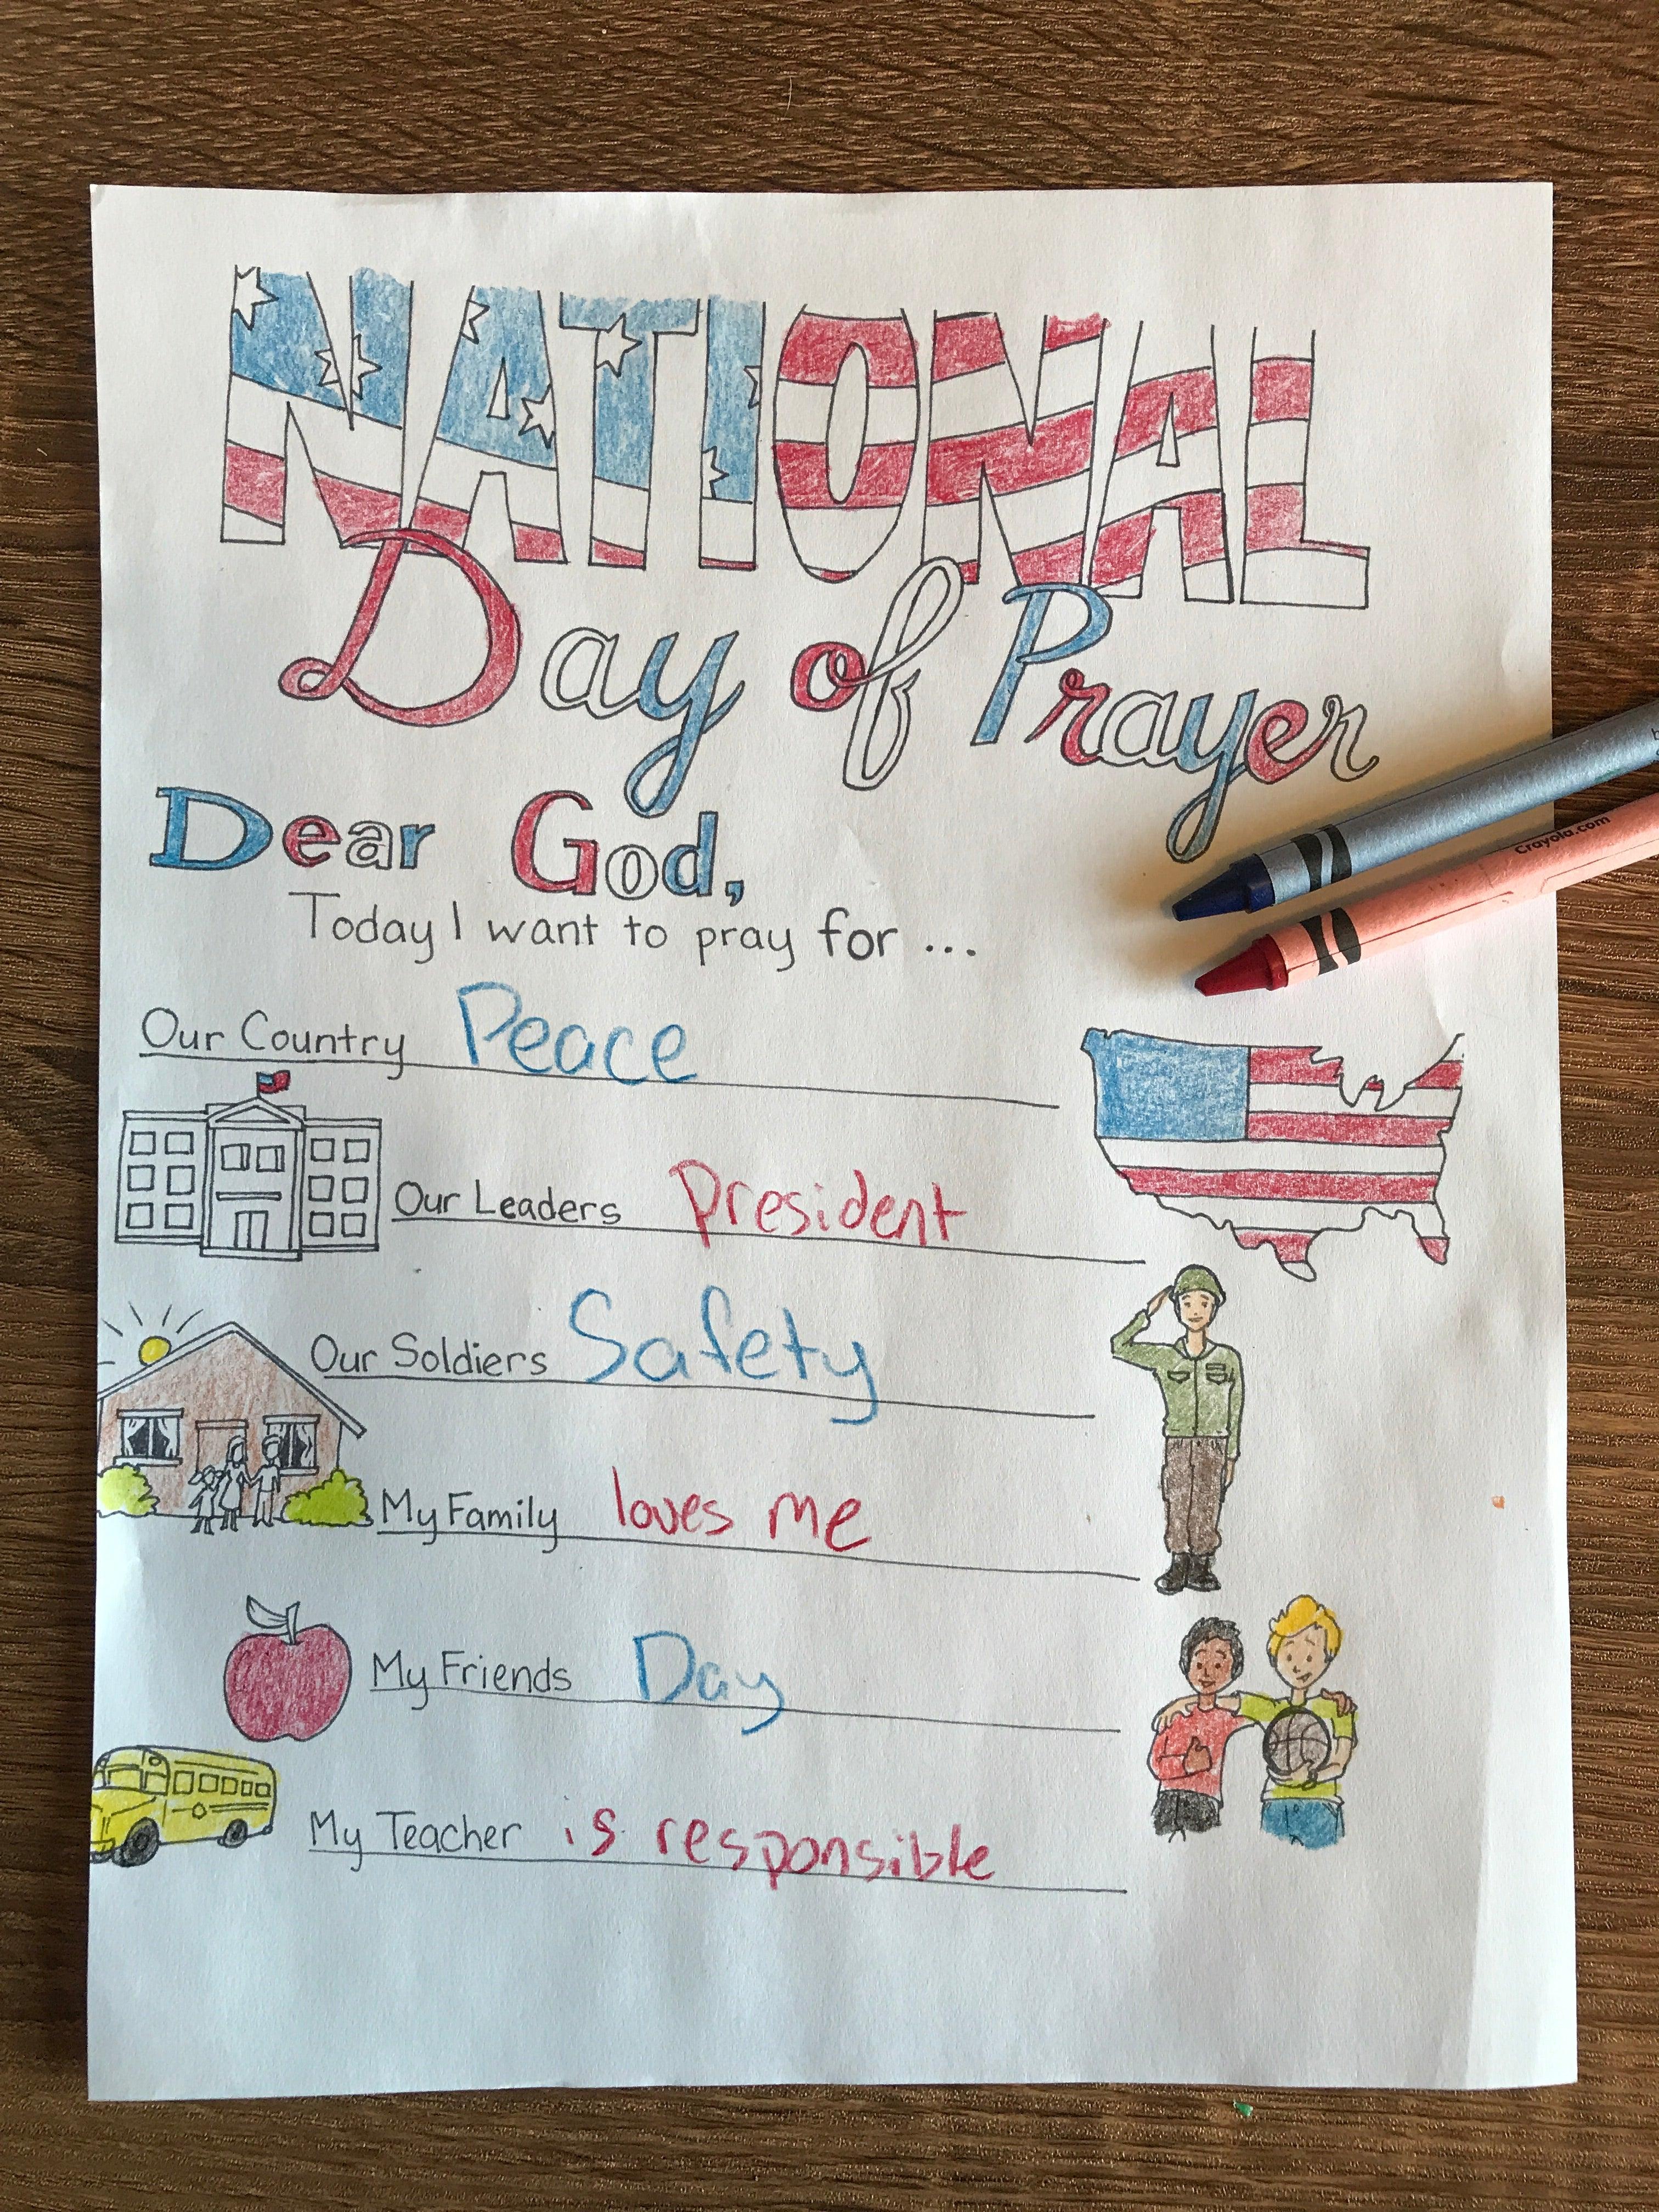 NATIONAL
Day of Prayer
Dear God,
Today I want to pray for ...
Crayola.com
Our Country Peace
Our Leaders President
Our Soldiers Safety
My Family loves me
My Friends Day
My Teacher is responsible